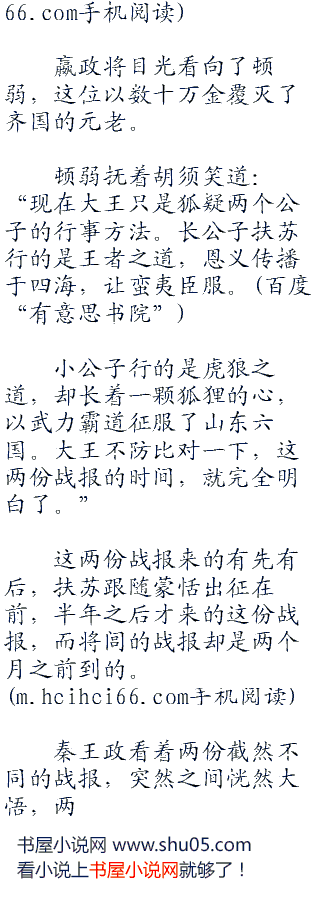 66.com手机阅读)
嬴政将目光看向了顿
弱，这位以数十万金覆灭了
齐国的元老。
顿弱抚着胡须笑道：
“现在大王只是狐疑两个公
子的行事方法。长公子扶苏
行的是王者之道，恩义传播
于四海，让蛮夷臣服。(百度
“有意思书院”)
小公子行的是虎狼之
道，却长着一颗狐狸的心，
以武力霸道征服了山东六
国。大王不防比对一下，这
两份战报的时间，就完全明
白了。”
这两份战报来的有先有
后，扶苏跟随蒙恬出征在
前，半年之后才来的这份战
报，而将闾的战报却是两个
月之前到的。
(m.hcihci66.com手机阅读)
秦王政看着两份截然不
同的战报，突然之间恍然大
悟，两
书屋小说网 www.shu05.com
看小说上书屋小说网就够了！